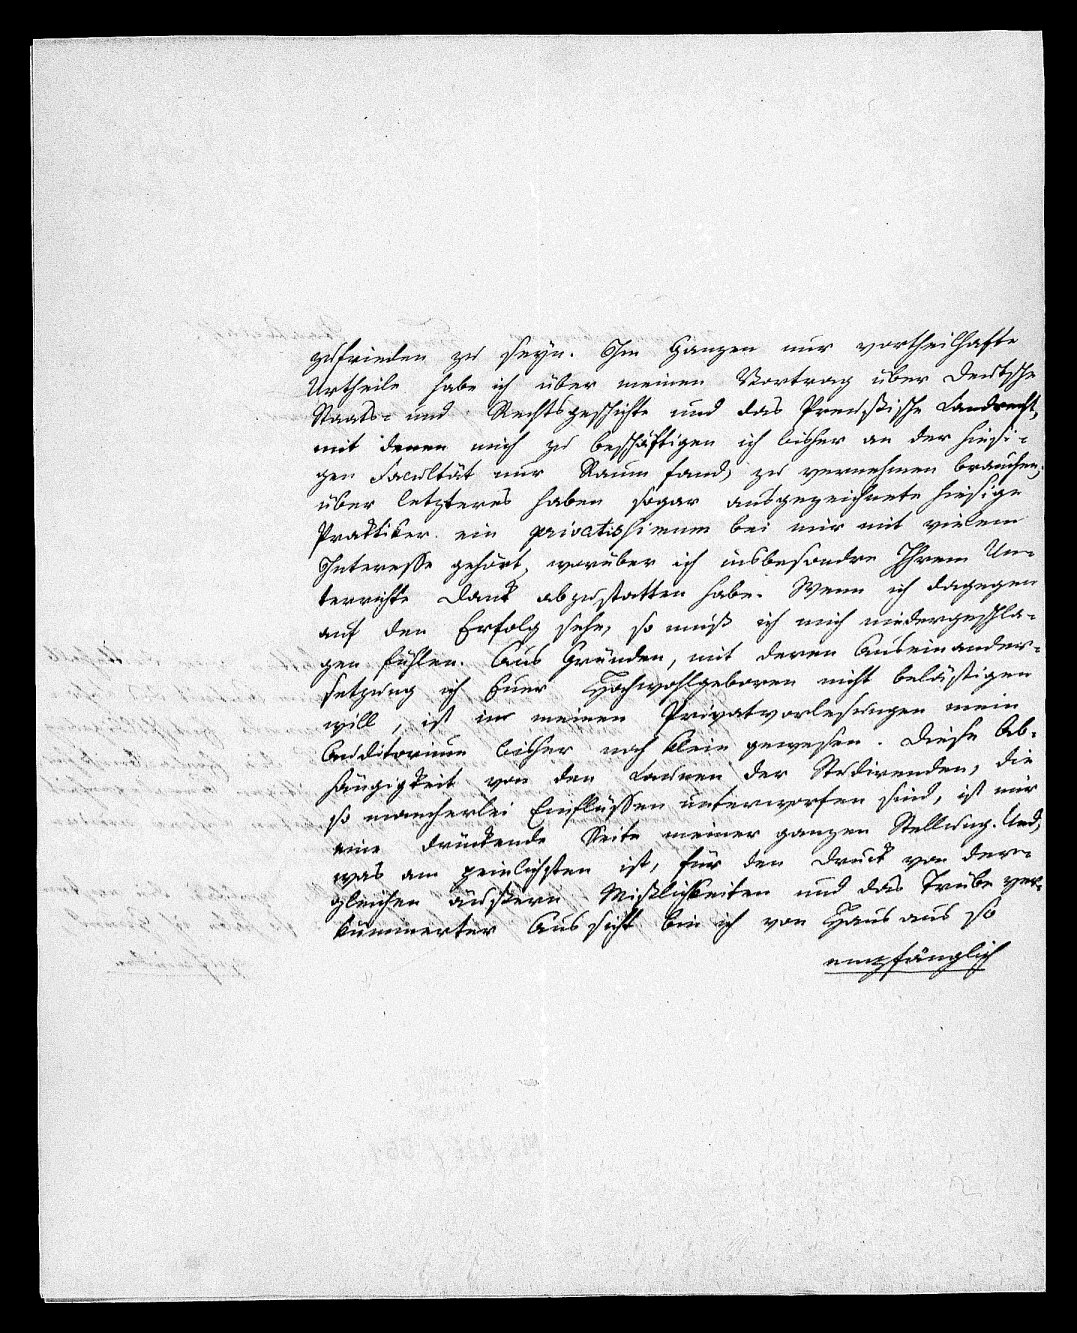 zufrieden zu seyn. Im Ganzen nur vortheilhafte
Urtheile habe ich über meinen Vortrag über Deutsche
Staats- und Rechtsgeschichte und das Preußische Landrecht,
mit denen mich zu beschäftigen ich bisher an der hiesi-
gen Facultät nur Raum fand, zu vernehmen brauchen;
über letzteres haben sogar ausgezeichnete hiesige
Praktiker ein privatissimum bei mir mit vielem
Interesse gehört, worüber ich insbesondre Ihrem Un-
terrichte Dank abzustatten habe. Wenn ich dagegen
auf den Erfolg sehe, so muß ich mich niedergeschla-
gen fühlen. Aus Gründen, mit deren Auseinander-
setzung ich Euer Hochwohlgeboren nicht belästigen
will, ist in meinen Privatvorlesungen mein
Auditorium bisher noch klein gewesen. Diese Ab-
hängigkeit von den Launen der Studirenden, die
so mancherlei Einflüssen unterworfen sind, ist mir
eine drückende Seite meiner ganzen Stellung. Und,
was am peinlichsten ist, für den Druck von der-
gleichen äußern Mißlichkeiten und das Trübe ver-
kümmerter Aussicht bin ich von Haus aus so
empfänglich